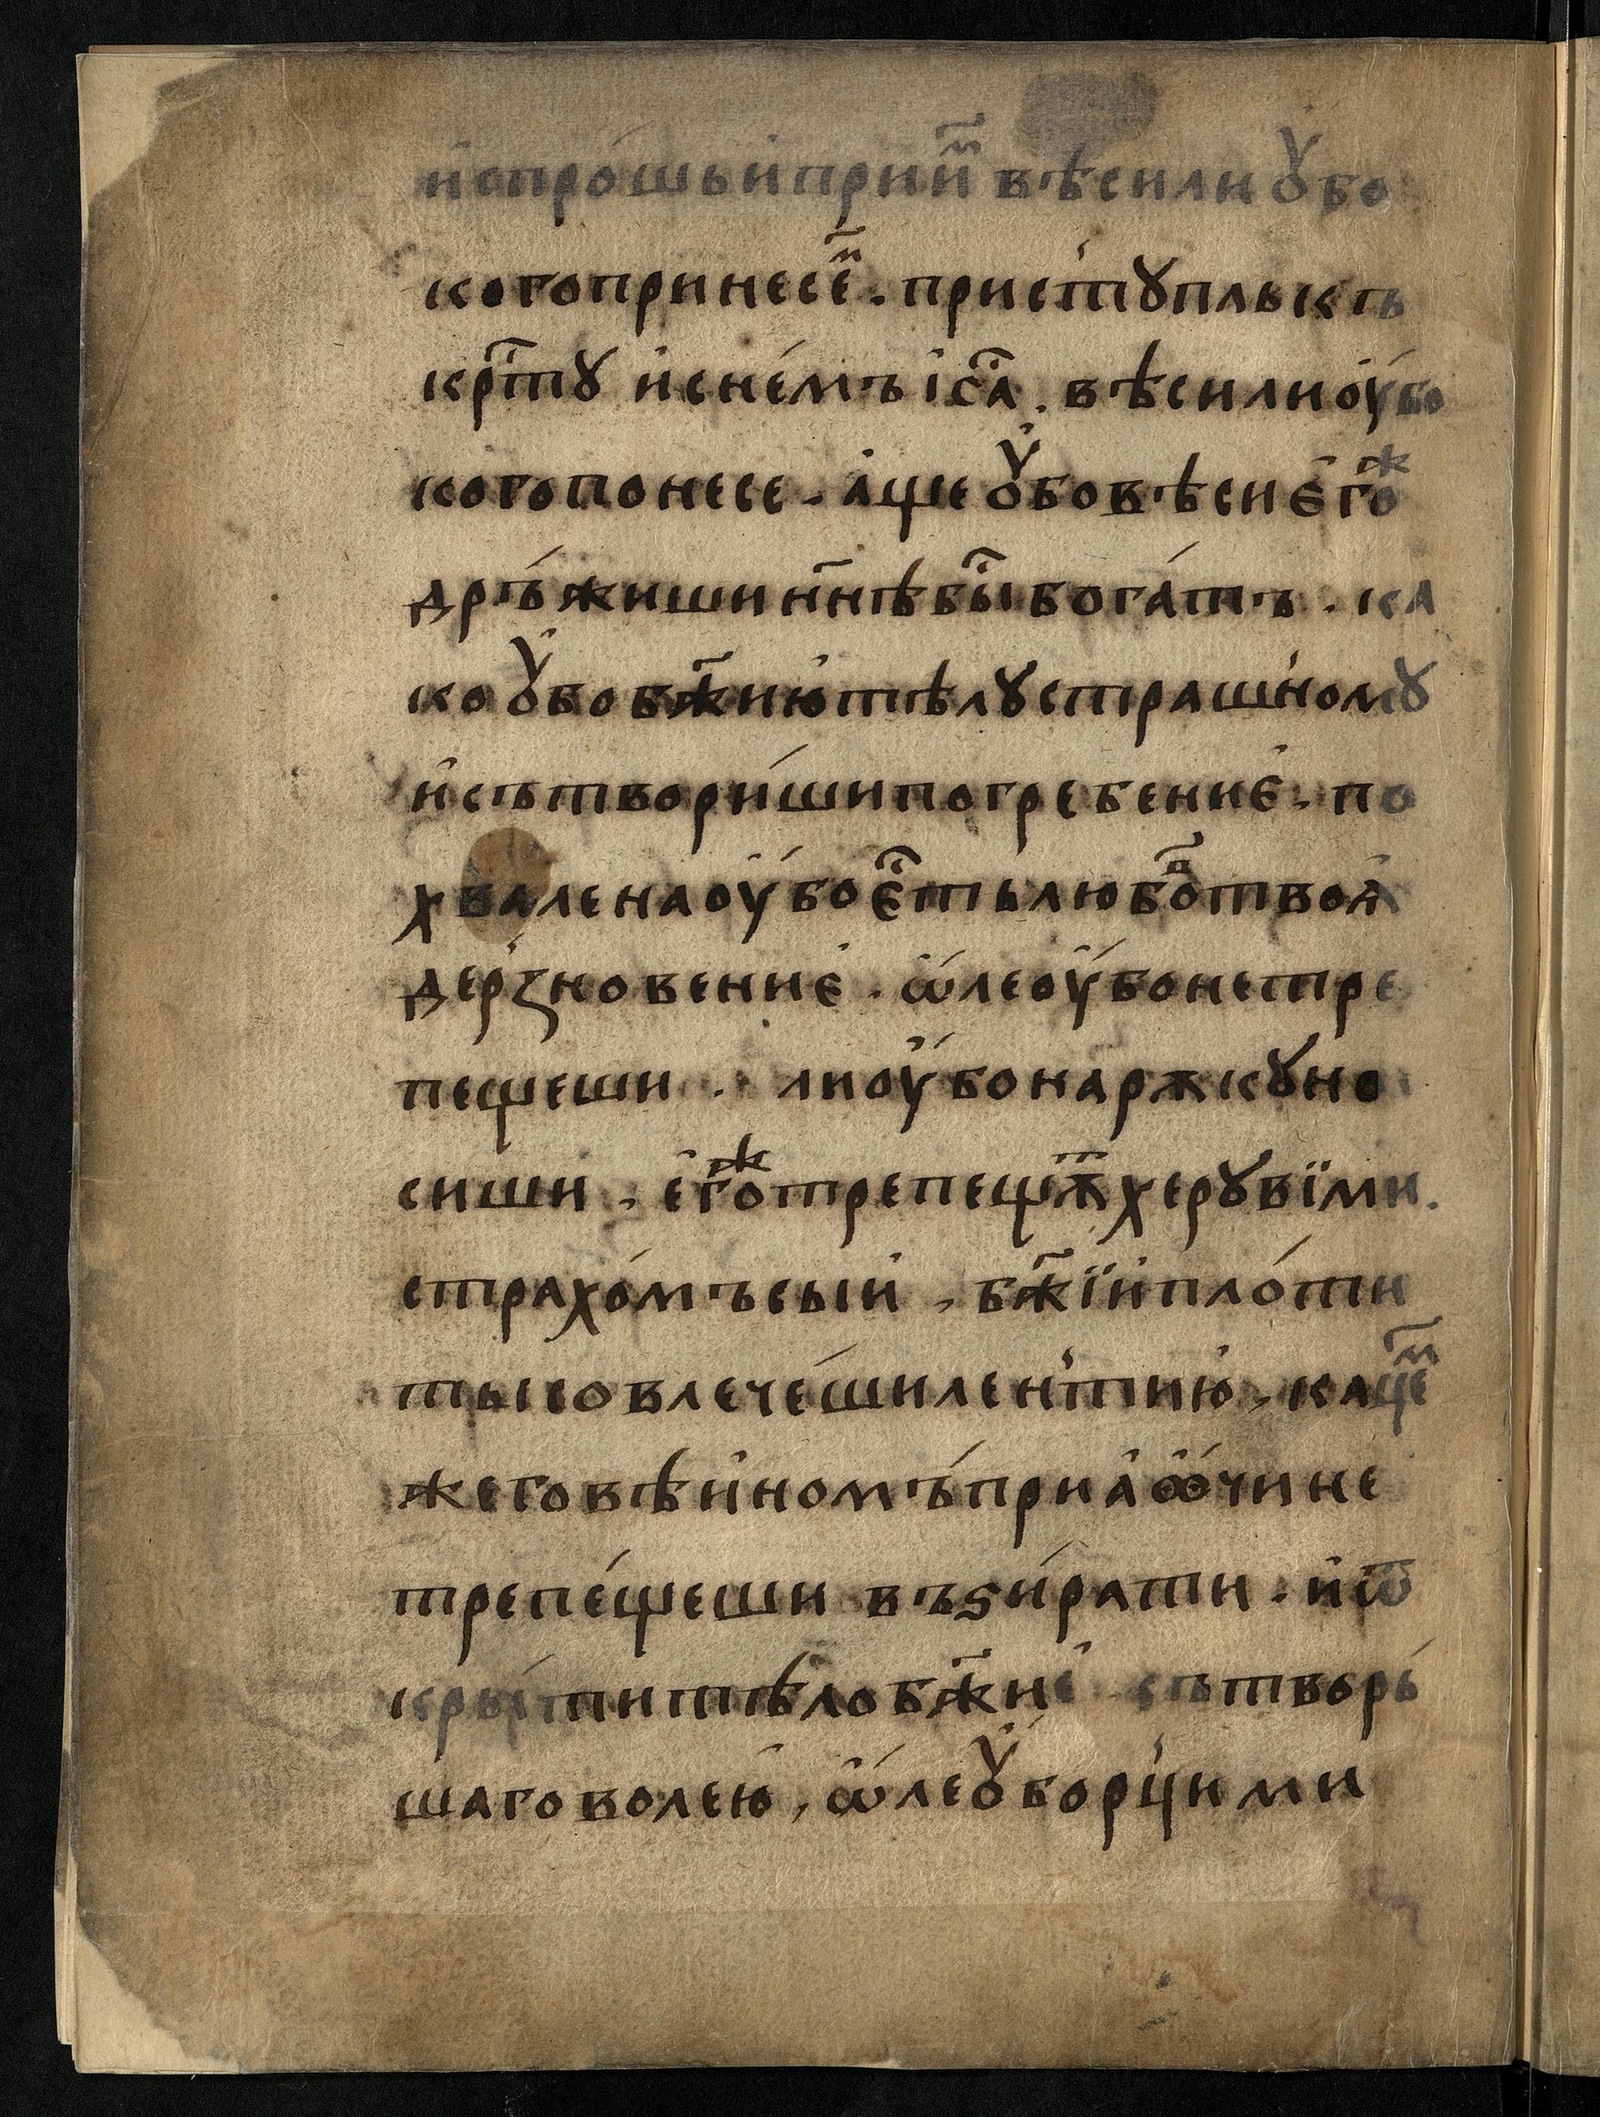 и҆спро́шьи҆прии҆ⷨ҇ вѣсилиꙋ҆бо
когопринесеⷨ҇. пристꙋплькъ
крⷭ҇тꙋ и҆сне́мъ і҆сⷭ҇а. вѣсилиоу҆бо
когопонесе. а҆щеꙋ҆бовѣсие҆гоⷤ
дръ́жишиннѣ҃быⷭ҇бога́тъ. ка
коꙋ҆бобж҃ию҆тѣлꙋстрашномꙋ
и҆сътвори́шипогребение҆. по
хваленаоу҆боє҆ⷭ҇тьлюбоⷡ҇твоꙗ҆
дерꙁновение҆. ѽлеоу҆бонетре
пещеши. лиоу҆бонарѫкꙋно
сиши. е҆гоⷤтрепещѫⷮхерꙋвїми.
страхо́мъсыи҆. бж҃їи҆пло́ти
тысовлече́шилентию҆. кацеⷨ҇
жеговѣи҆номъ́приа҆ꙍ҆чине
трепе́щеши въѕи́рати. и҆ѿ
кры́титѣлобж҃ие҆ сътворь́
шаговолею҆, ѽлеꙋ҆борцими